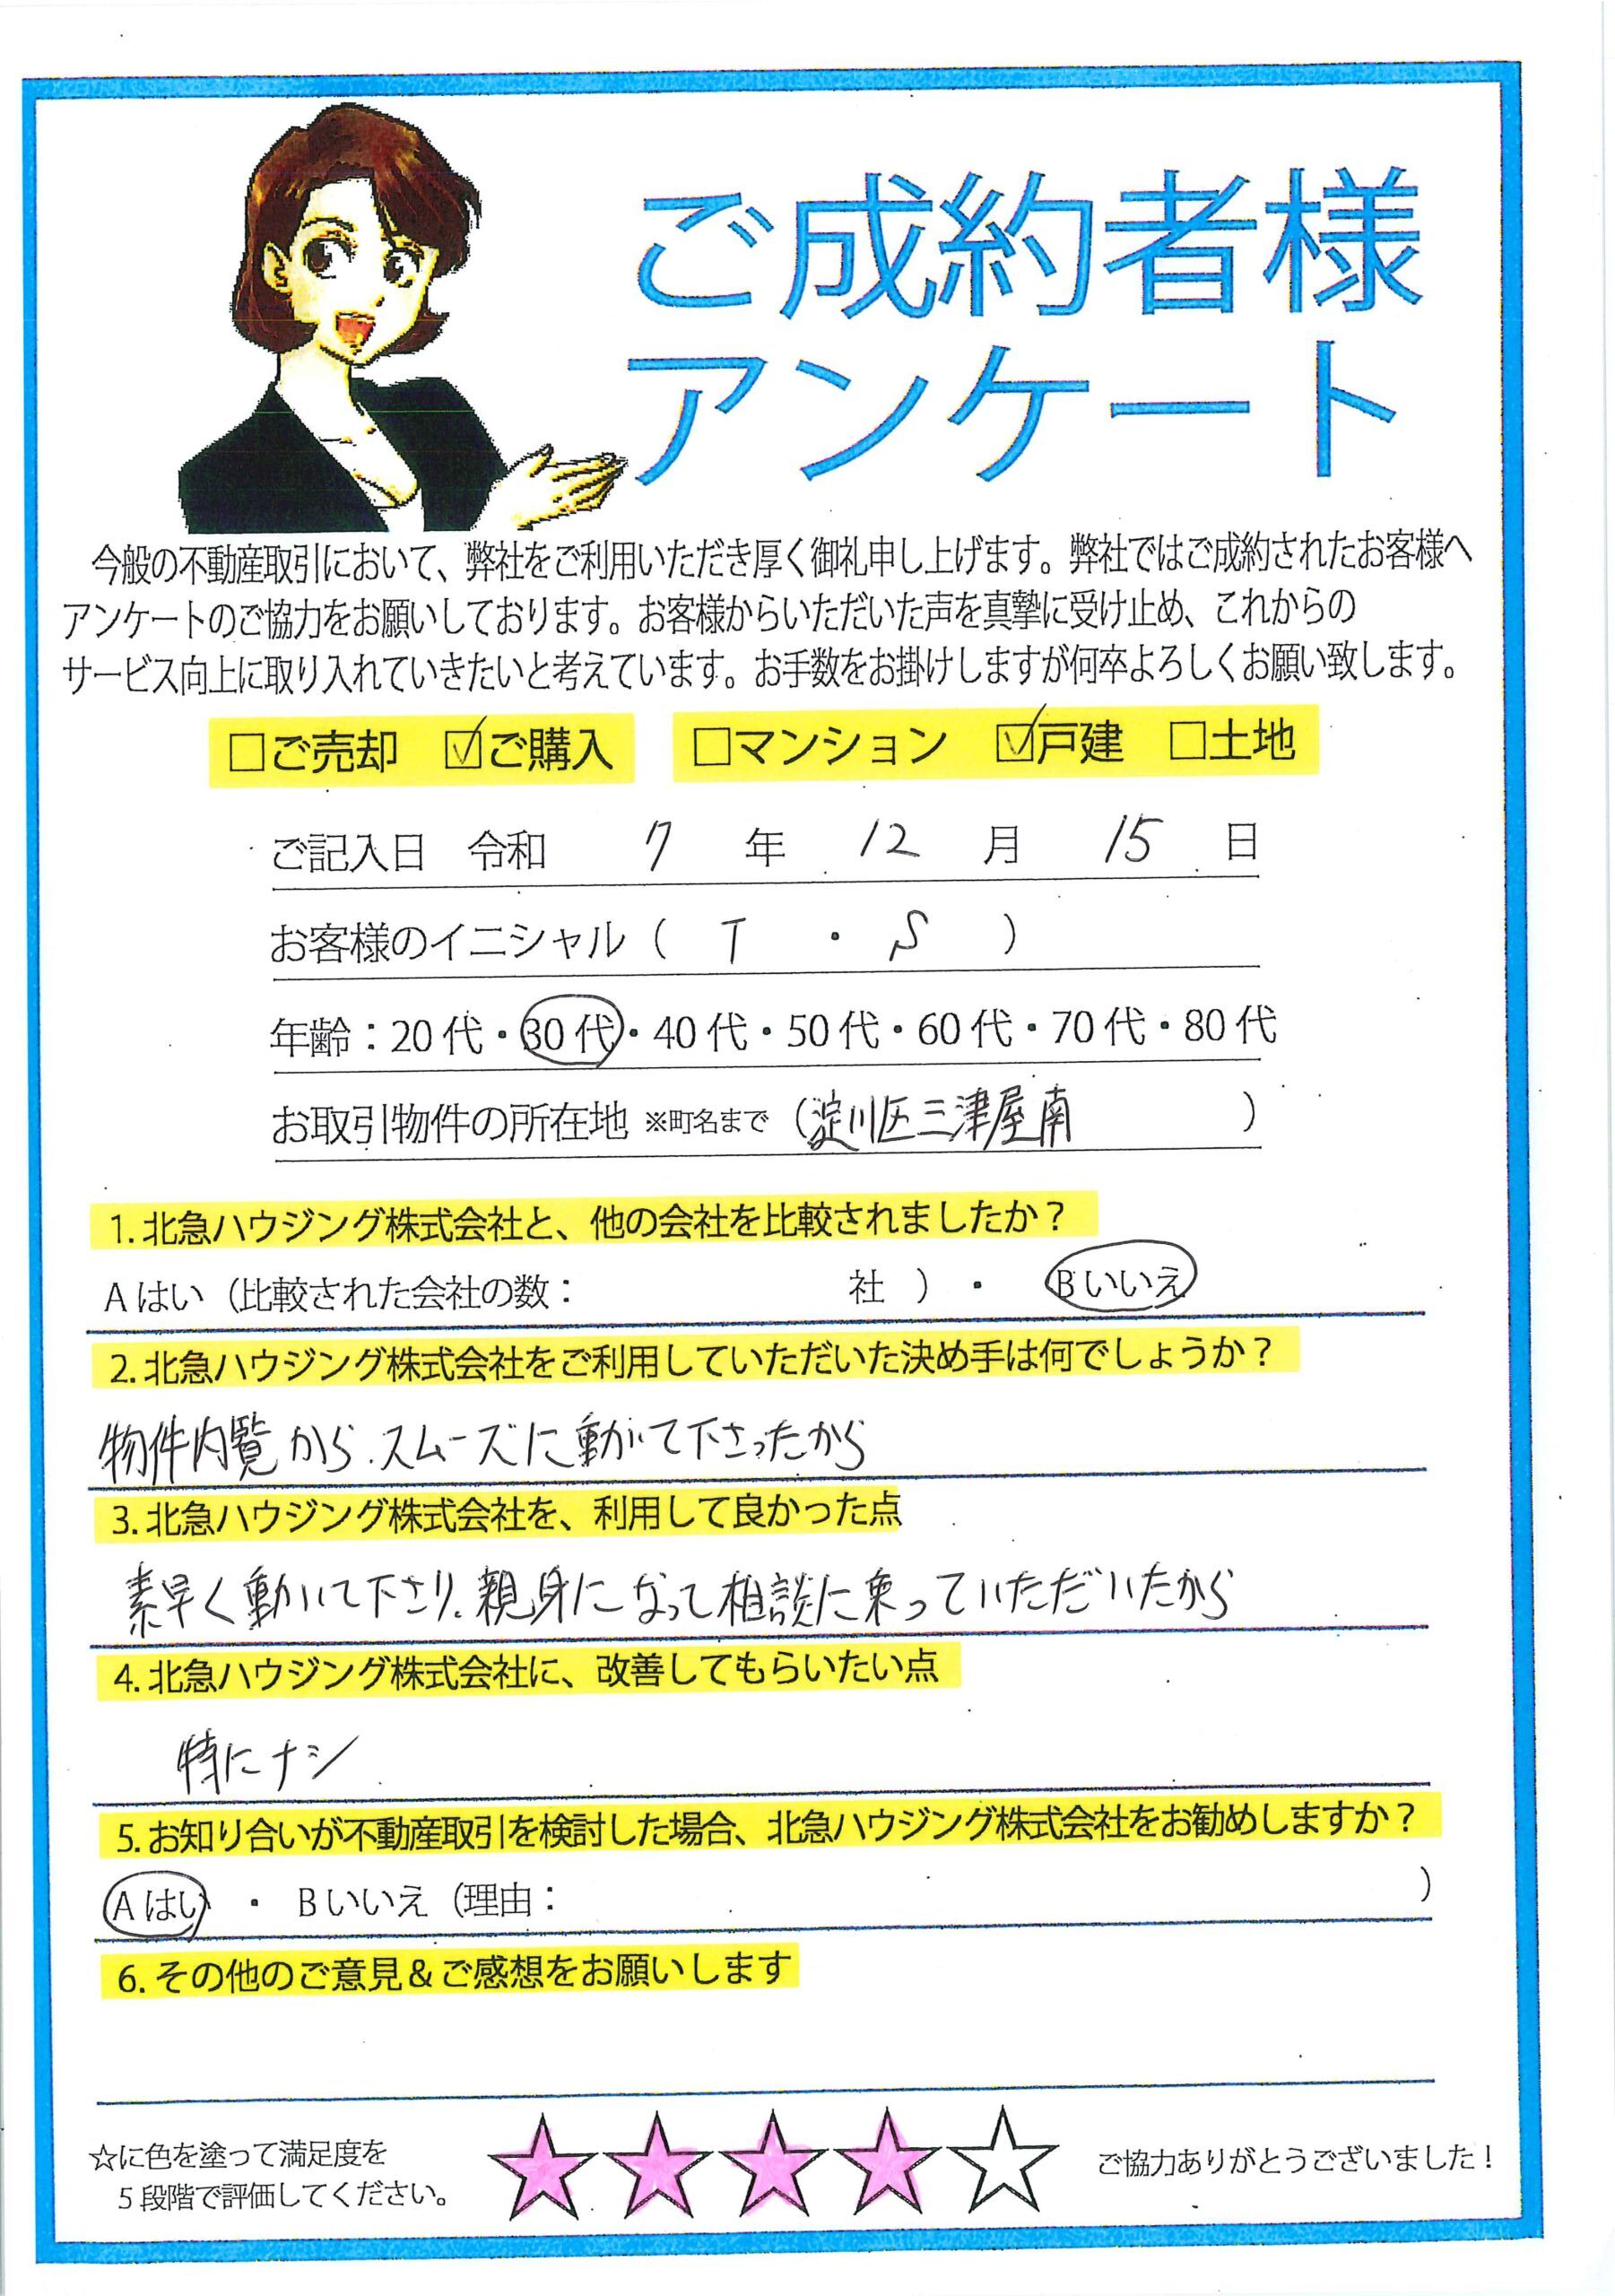 ご成約者様
アンケート
今般の不動産取引において、弊社をご利用いただき厚く御礼申し上げます。弊社ではご成約されたお客様へ
アンケートのご協力をお願いしております。お客様からいただいた声を真摯に受け止め、これからの
サービス向上に取り入れていきたいと考えています。お手数をお掛けしますが何卒よろしくお願い致します。
□ご売却 ☑ご購入 □マンション ☑戸建 □土地
ご記入日 令和 7 年 12 月 15 日
お客様のイニシャル（ T ・ S ）
年齢：20代・30代・40代・50代・60代・70代・80代
お取引物件の所在地 ※町名まで（淀川区三津屋南 ）
1. 北急ハウジング株式会社と、他の会社を比較されましたか？
A はい（比較された会社の数： 社 ）・ B いいえ
2. 北急ハウジング株式会社をご利用していただいた決め手は何でしょうか？
物件内覧から、スムーズに動いて下さったから
3. 北急ハウジング株式会社を、利用して良かった点
素早く動いて下さり、親身になって相談に乗っていただいたから
4. 北急ハウジング株式会社に、改善してもらいたい点
特にナシ
5. お知り合いが不動産取引を検討した場合、北急ハウジング株式会社をお勧めしますか？
A はい ・ B いいえ（理由： ）
6. その他のご意見＆ご感想をお願いします
☆に色を塗って満足度を
5段階で評価してください。
ご協力ありがとうございました！